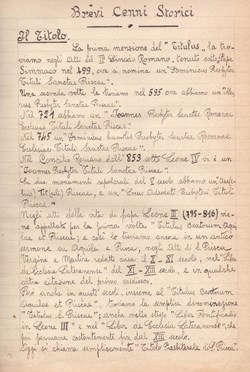 Brevi Cenni Storici
Il Titolo.
La prima menzione del "Titulus", la tro-
viamo negli Atti del IIº Sinodo Romano, tenuto sotto Papa
Simmaco nel 499, ora a nomina un "Dominicus Presbyter
Tituli Sanctae Priscae".
Una seconda volta la
nel 595 ove abbiamo un
rus Presbyter Tituli Sanctae Priscae".
Nel 721 abbiamo un "Joannes Presbyter Sanctae Romanae
Ecclesiae Tituli Sanctae Priscae".
Nel 745 un Presbyter Sanctae Romanae
Ecclesiae Tituli Sanctae Priscae".
Nel Concilio Romano dell'853 sotto Leone IV vi è un
"Joannes Presbyter Tituli Sanctae Priscae".
In due monumenti sepolcrali del V secolo abbiamo un
Tituli Priscae, e un Presbyteri Tituli
Priscae".
Negli atti della vita di papa Leone III (795-816) vie-
ne appellato per la prima volta "Titulus Beatorum Aqui-
lae et Priscae; e così lo troviamo ancora in un antico
di Aquila e Prisca, negli Atti di S. Prisca
Vergine e Martire redatti circa il X - XI secolo, nel "Liber
de Ecclesia Lateranensi" del XI - XII secolo, e in qualche
altra citazione del primo medioevo.
Però anche in questi secoli, insieme al "Titulus Beatorum
Aquilae et Priscae", troviamo la semplice denominazione
di "Titulus S. Priscae"; anche nello stesso "Liber Pontificalis
in Leone III" e nel "Liber de Ecclesia Lateranensi", che
poi permane costantemente fin dal XIII secolo.
Oggi si chiama semplicemente "Titolo Presbiterale di S. Prisca".